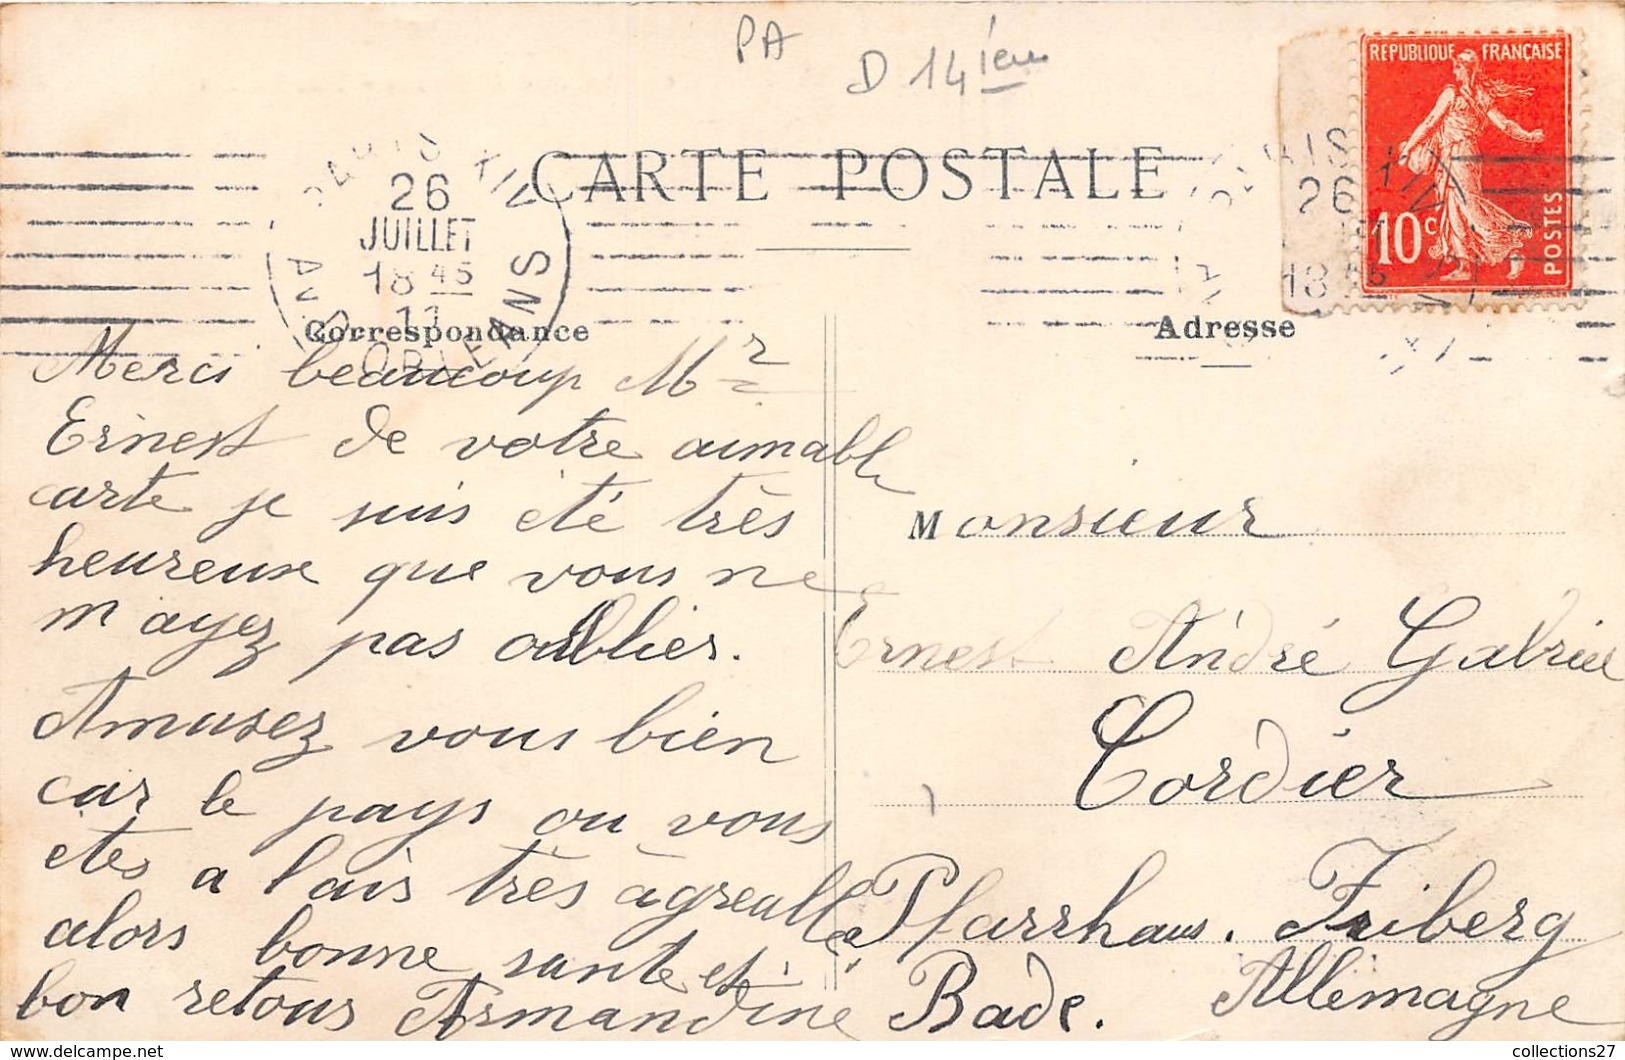 PA
D 14 ième
REPUBLIQUE FRANÇAISE
10c
POSTES
CARTE POSTALE
PARIS XIV
26
JUILLET
18 45
11
AV. D'ORLEANS
Correspondance
Adresse
Merci beaucoup Mr
Ernest de votre aimable
carte je suis été très
heureuse que vous ne
m'ayez pas oublier.
Amusez vous bien
car le pays ou vous
etes a l'air très agreable
alors bonne sante et
bon retour Armandine
Monsieur
Ernest André Gabriel
Cordier
Pfarrhaus. Friberg
Bade. Allemagne
collections27